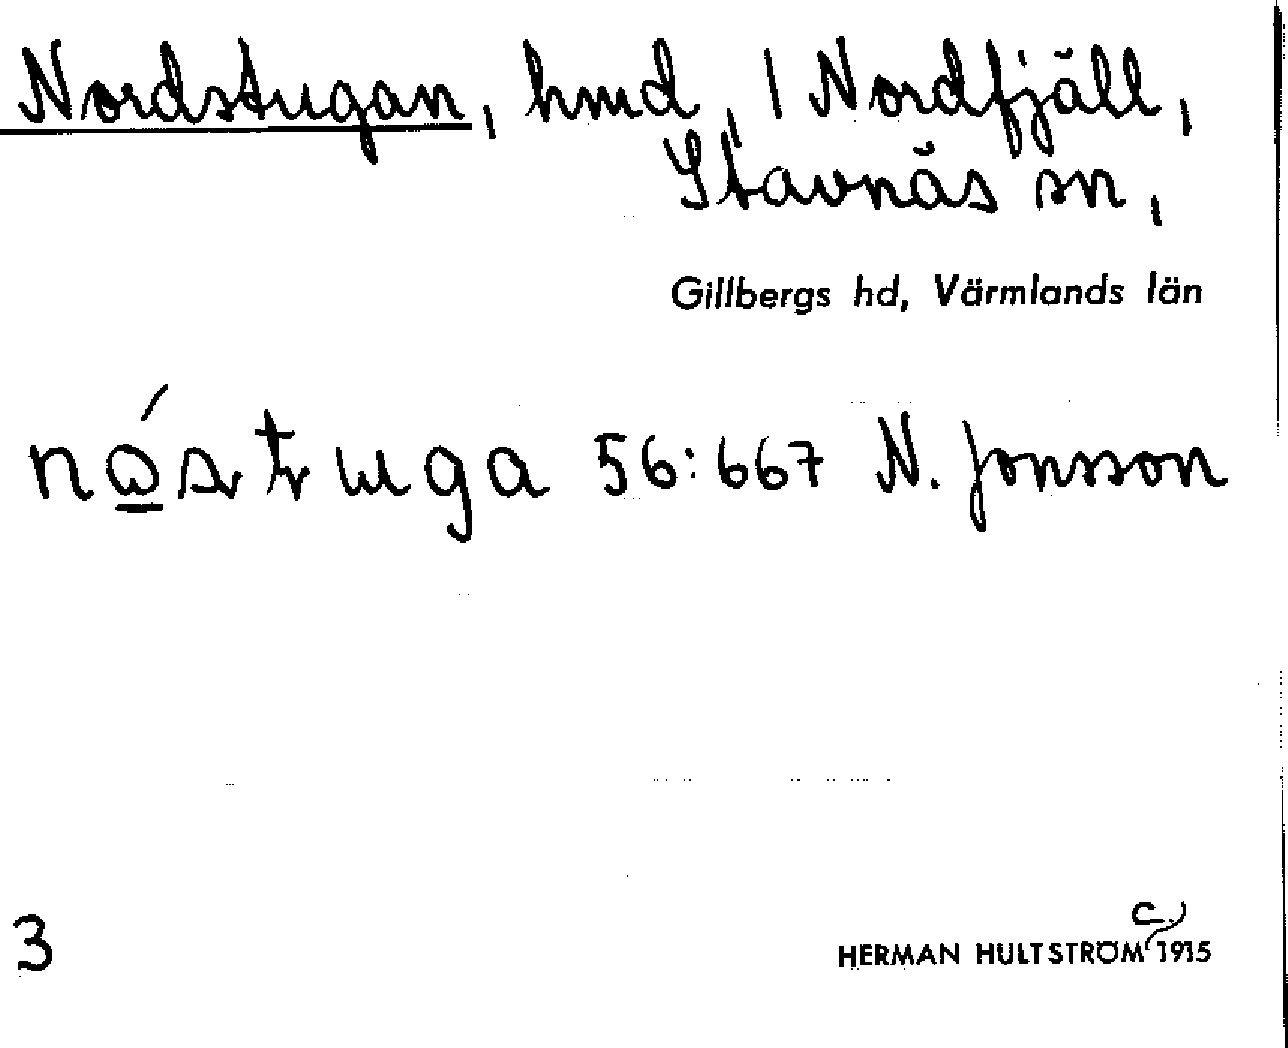 Nordstugan, hmd, 1 Nordfjäll,
Stavnäs sn,
Gillbergs hd, Värmlands län
56:667 N. Jonsson
3
C.
HERMAN HULTSTRÖM 1915